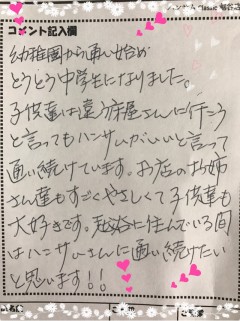 コメント記入欄
幼稚園から通い始め
とうとう中学生になりました。
子供達は違う床屋さんに行こう
と言ってもハンサムがいいと言って
通い続けています。お店のお姉
さん達もすごくやさしくて子供達も
大好きです。越谷に住んでいる間
はハンサムさんに通い続けたい
と思います!!